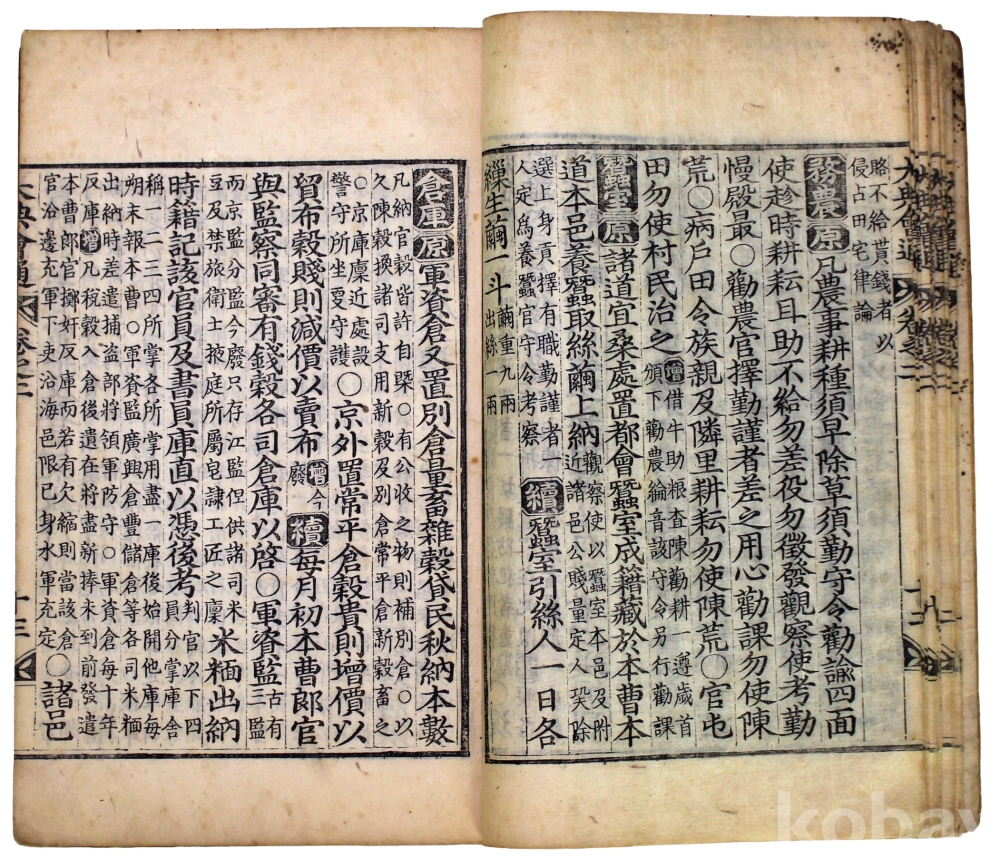 大典會通 卷之二
賂不給貰錢者以
侵占田宅律論
務農 原 凡農事耕種須早除草須勤守令勸諭四面
使趁時耕耘且助不給勿差役勿徵發觀察使考勤
慢殿最○勸農官擇勤謹者差之用心勸課勿使陳
荒○病戶田令族親及隣里耕耘勿使陳荒○官屯
田勿使村民治之 增 借牛助根查陳勸耕一遵歲首
頒下勸農綸音該守令另行勸課
蠶室 原 諸道宜桑處置都會蠶室成籍藏於本曹本
道本邑養蠶取絲繭上納 觀察使以蠶室本邑及附
近諸邑公賤量定人
選上身貢擇有職勤謹者一
人定爲養蠶官守令考察 續 蠶室引絲人一日各
繅生繭一斗 繭重九兩
出絲一兩
倉庫 原 軍資倉又置別倉量畜雜穀貸民秋納本數
凡納官穀皆許自槩○有公收之物則補別倉○以
久陳穀換諸司支用新穀及別倉常平倉新穀畜之
警守所近處設
○京庫坐更守護 ○京外置常平倉穀貴則增價以
貿布穀賤則減價以賣布 增 今廢 續 每月初本曹郞官
與監察同審有錢穀各司倉庫以啓○軍資監 古有
三監
而京監分監今廢只存江監但供諸司米
豆及禁旅衛士掖庭所屬皂隷工匠之廩 米糆出納
時籍記該官員及書員庫直以憑後考 判官以下四
員分掌庫舍
稱一二三四所掌各所掌用盡一庫後始開他庫每
朔末報本曹○軍資監廣興倉豐儲倉等各司米糆
出納時差捕盜部將領軍防守○軍資倉每十年
反庫 增 凡稅穀入倉後遺在將盡新捧未到前發遣
本曹郞官擲奸反庫而若有欠縮則當該倉
官沿邊充軍下吏沿海邑限己身水軍充定 ○諸邑
大典會通 卷之二 十三